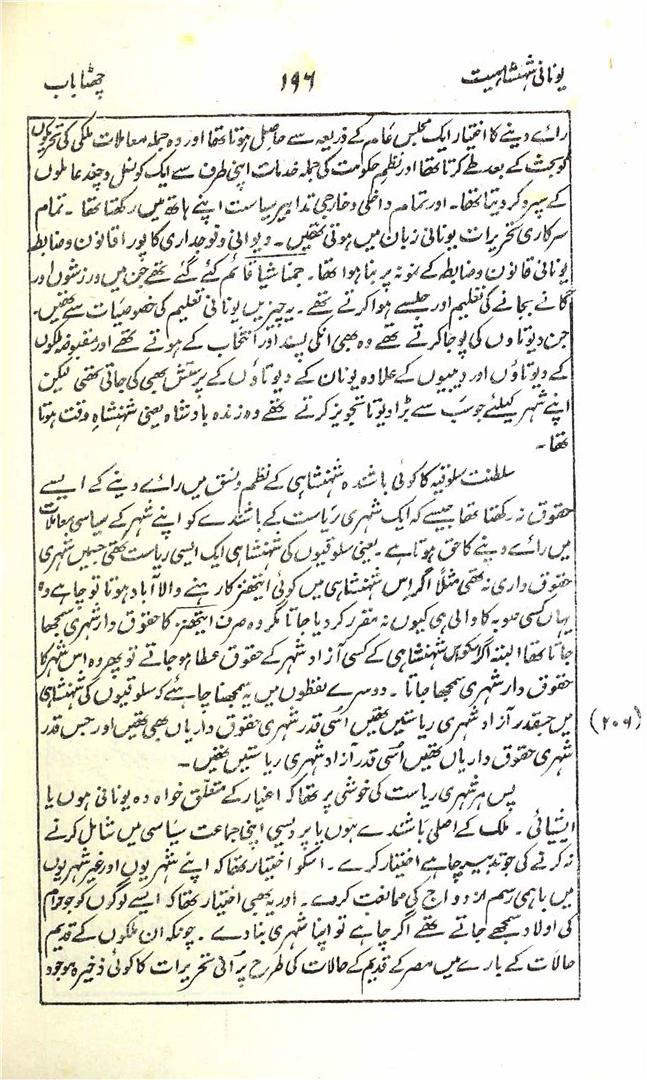 یونانی شہنشاہیت ۱۹۶ چھٹا باب
رائے دینے کا اختیار ایک مجلس عامہ کے ذریعہ سے حاصل ہوتا تھا اور وہ جملہ معاملات ملکی کی تحریکوں
کو بحث کے بعد طے کرتا تھا اور نظم حکومت کی جملہ خدمات اپنی طرف سے ایک کونسل و چند عاملوں
کے سپرد کر دیتا تھا۔ اور تمام داخلی و خارجی تدابیر سیاست اپنے ہاتھ میں رکھتا تھا ۔ تمام
سرکاری تحریرات یونانی زبان میں ہوتی تھیں۔ دیوانی و فوجداری کا پورا قانون و ضابطہ
یونانی قانون و ضابطہ کے نمونہ پر بنا ہوا تھا۔ جمناشیا قائم کئے گئے تھے جن میں ورزشوں اور
گانے بجانے کی تعلیم اور جلسے ہوا کرتے تھے ۔ یہ چیزیں یونانی تعلیم کی خصوصیات سے تھیں۔
جن دیوتاوں کی پوجا کرتے تھے وہ بھی انکی پسند اور انتخاب کے ہوتے تھے اور مقبوضہ ملکوں
کے دیوتاؤں اور دیبیوں کے علاوہ یونان کے دیوتاؤں کے پرستش بھی کی جاتی تھی لیکن
اپنے شہر کیلئے جو سب سے بڑا دیوتا تجویز کرتے تھے وہ زندہ بادشاہ یعنی شہنشاہ وقت ہوتا
تھا ۔
سلطنت سلوقیہ کا کوئی باشندہ شہنشاہی کے نظم و نسق میں رائے دینے کے ایسے
حقوق نہ رکھتا تھا جیسے کہ ایک شہری ریاست کے باشندے کو اپنے شہر کے سیاسی معاملات
میں رائے دینے کا حق ہوتا ہے ۔ یعنی سلوقیوں کی شہنشاہی ایک ایسی ریاست تھی جسمیں شہری
حقوق داری نہ تھی مثلاً اگر اس شہنشاہی میں کوئی ایتھنز کا رہنے والا آباد ہوتا تو چاہے وہ
یہاں کسی صوبہ کا والی ہی کیوں نہ مقرر کر دیا جاتا مگر وہ صرف ایتھنز کا حقوق دار شہری سمجھا
جاتا تھا البتہ اگر اسکو اس شہنشاہی کے کسی آزاد شہر کے حقوق عطا ہو جاتے تو پھر وہ اس شہر کا
حقوق دار شہری سمجھا جاتا ۔ دوسرے لفظوں میں یہ سمجھنا چاہئے کہ سلوقیوں کی شہنشاہی
میں جسقدر آزاد شہری ریاستیں تھیں اُسی قدر شہری حقوق داریاں بھی تھیں اور جس قدر
(۲۰۶)
شہری حقوق داریاں تھیں اُسی قدر آزاد شہری ریاستیں تھیں ۔
پس ہر شہری ریاست کی خوشی پر تھا کہ اغیار کے متعلق خواہ وہ یونانی ہوں یا
ایشیائی ۔ ملک کے اصلی باشندے ہوں یا پردیسی اپنی جماعت سیاسی میں شامل کرنے
نہ کرنے کی جو تدبیر چاہے اختیار کرے ۔ اسکو اختیار تھا کہ اپنے شہریوں اور غیر شہریوں
میں باہمی رسم ازدواج کی ممانعت کردے ۔ اور یہ بھی اختیار تھا کہ ایسے لوگوں کو جو حرام
کی اولاد سمجھے جاتے تھے اگر چاہے تو اپنا شہری بنا دے ۔ چونکہ ان ملکوں کے قدیم
حالات کے بارے میں مصر کے قدیم کے حالات کی طرح پرانی تحریرات کا کوئی ذخیرہ موجود